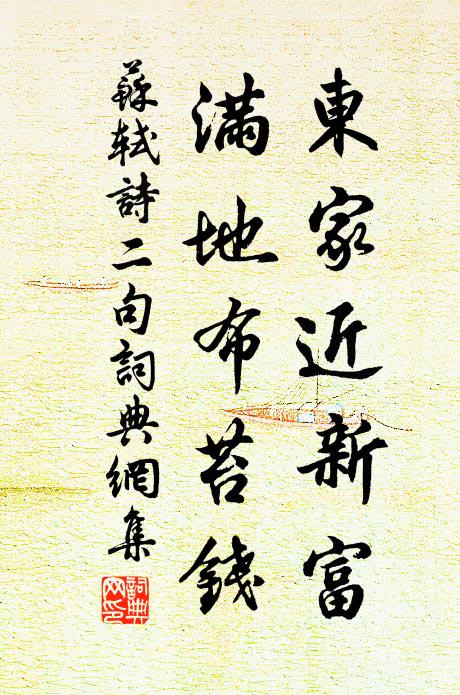 東家近新富
滿地布苔錢
蘇軾詩二句詞典網集
詞典网印